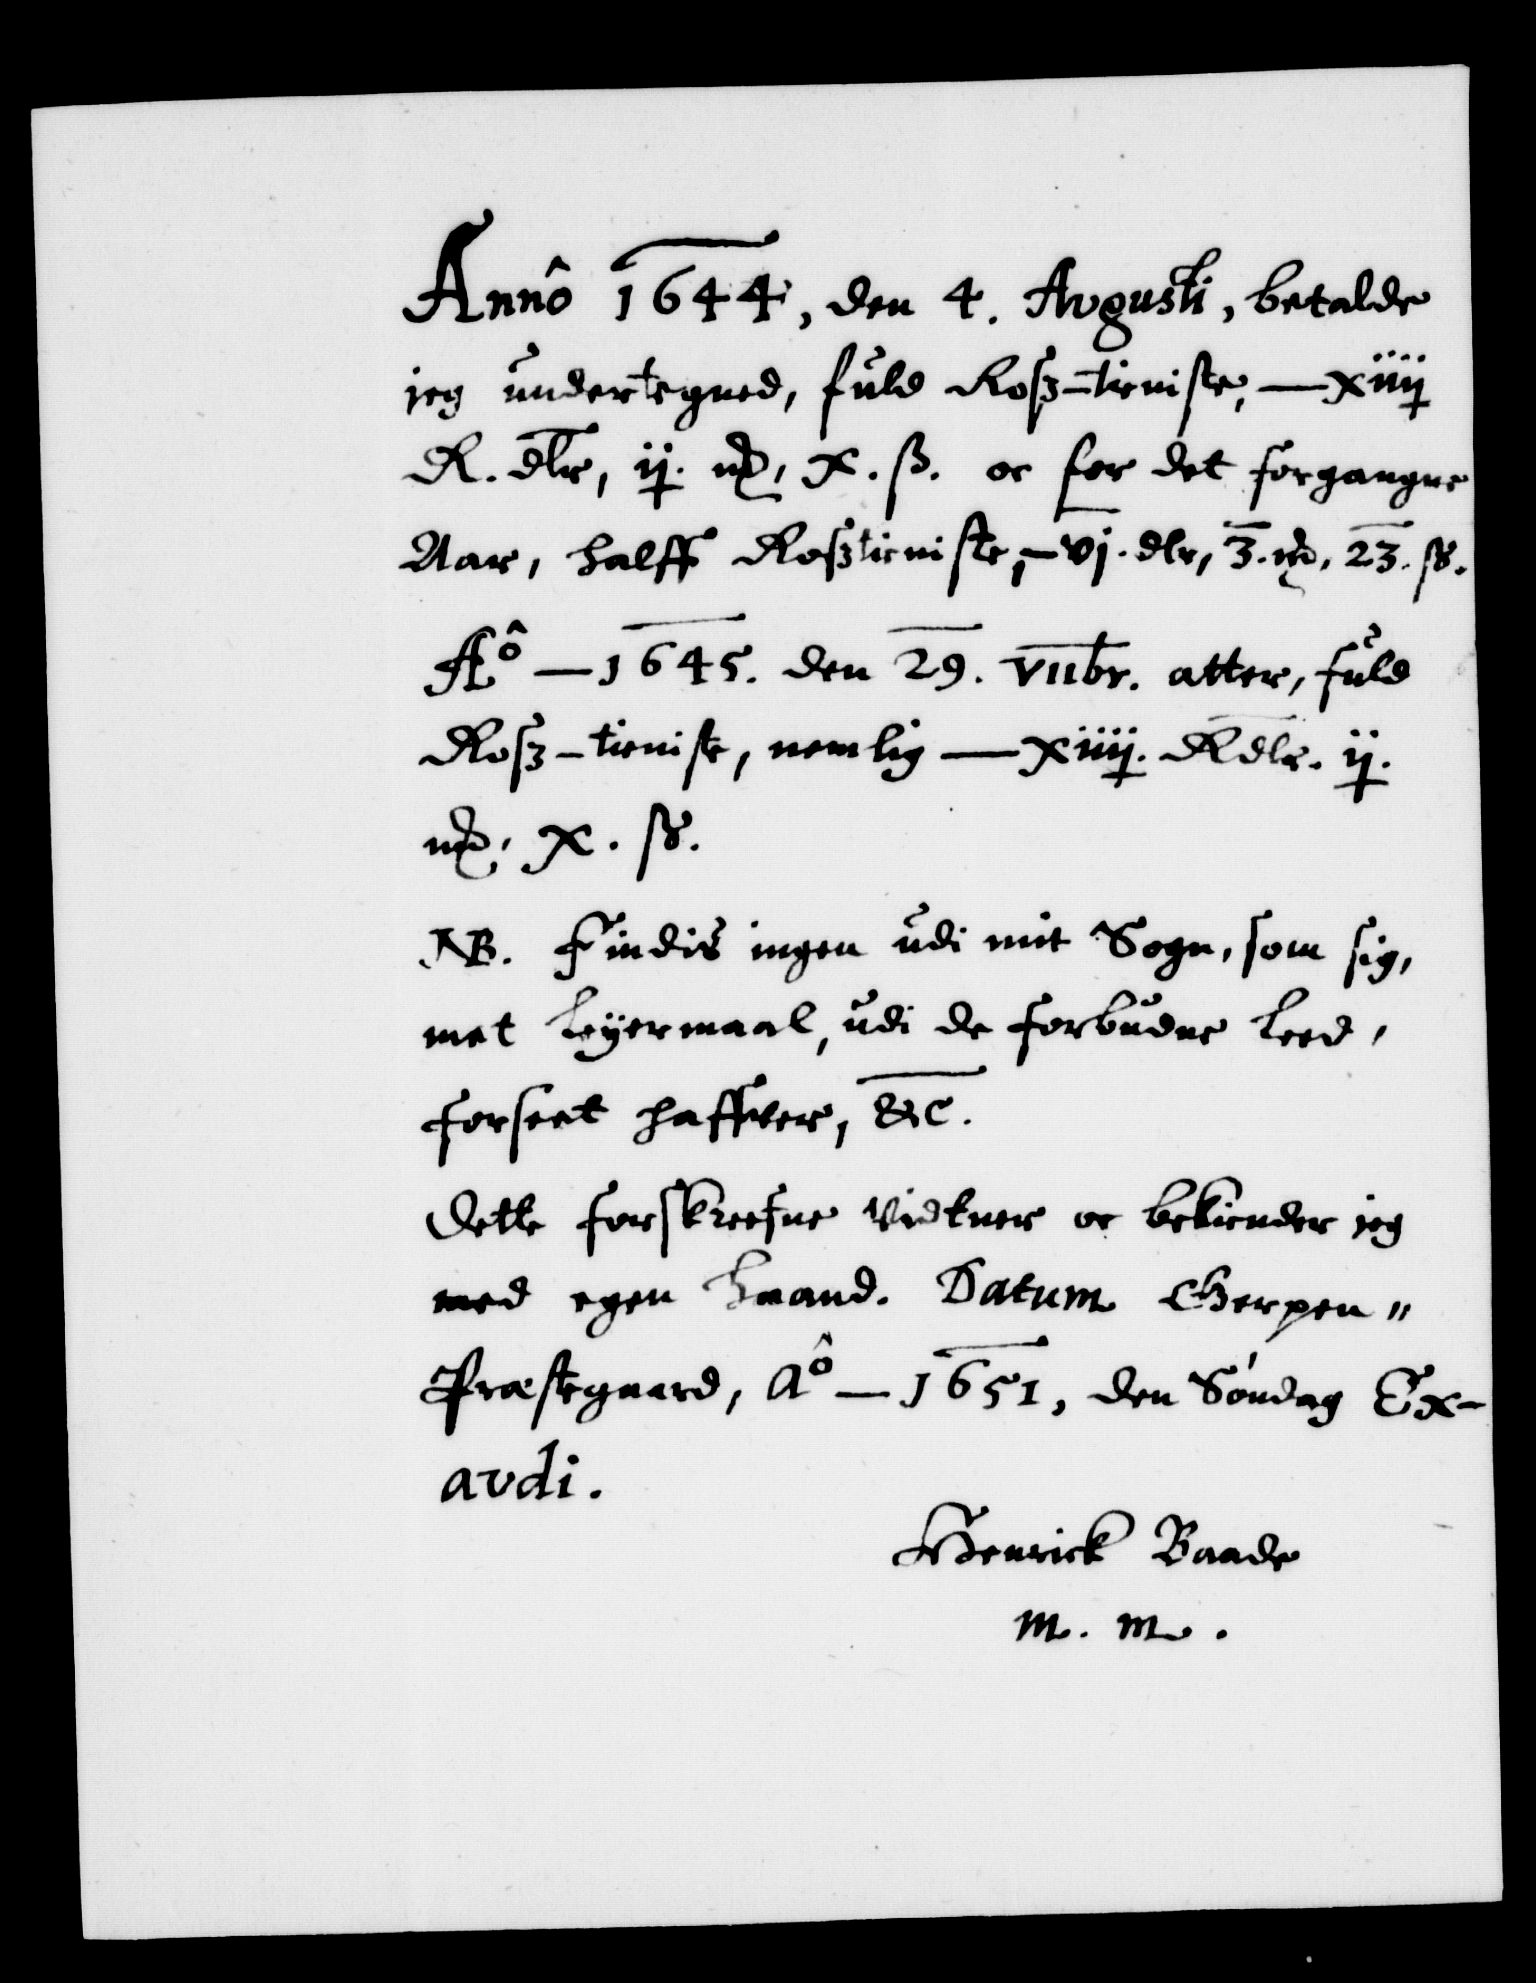 Annô 1644, den 4. Avgusti, betalde
jeg undertegned, fuld Rosz-tieniste, — xiiij
R. dlr, ij. mk, x. ß. oc for det forgangne
Aar, halff Rosztieniste, — vj. dlr, 3. mk, 23. ß.
Aô — 1645. den 29. VIIbr. atter, fuld
Rosz-tieniste, nemlig — xiiij. Rdlr. ij.
mk, x. ß.
NB. Findis ingen udi mit Sogn, som sig,
met Leyermaal, udi de forbudne Leed,
forseet haffver, &c.
Dette forskreefne Vidtner oc bekiender jeg
med egen Haand. Datum Gerpen〃
Præstegaard, Aô — 1651, den Søndag Ex-
avdi.
Henrick Baade
m. m.